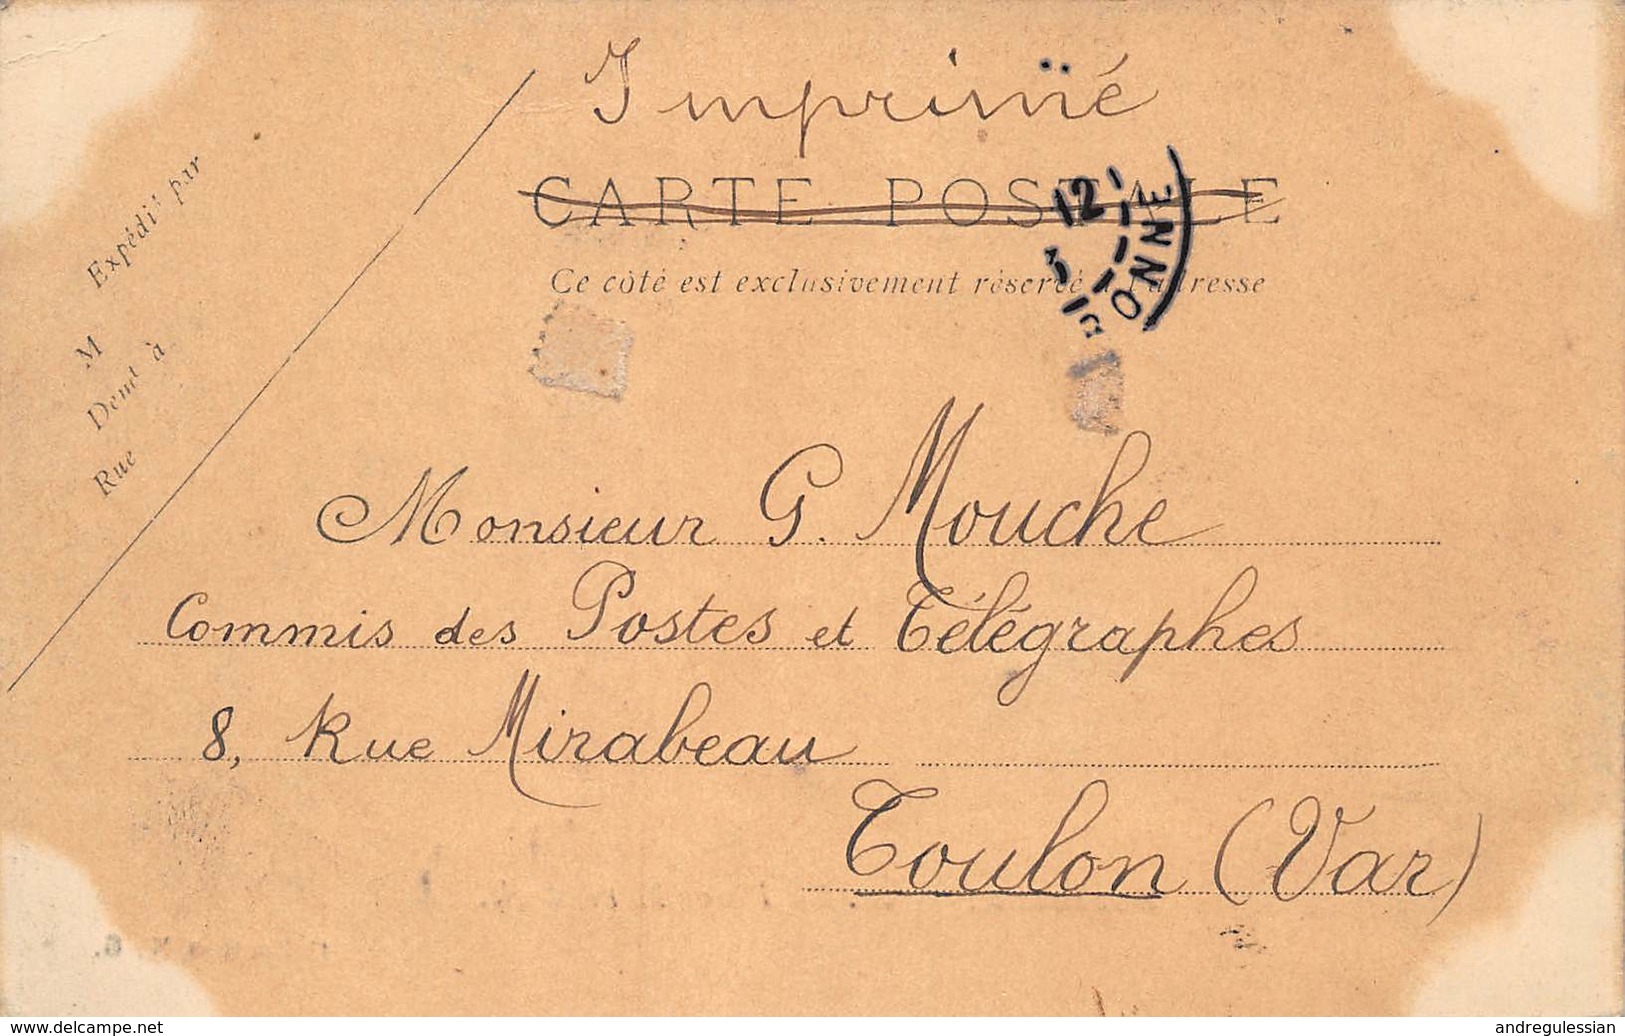 Imprimé
CARTE POSTALE
Ce côté est exclusivement réservé à l'adresse
12
3
ONNE
Expédié par
M
Demt à
Rue
Monsieur G. Mouche
Commis des Postes et Télégraphes
8, Rue Mirabeau
Toulon (Var)
www.delcampe.net
andregulessian